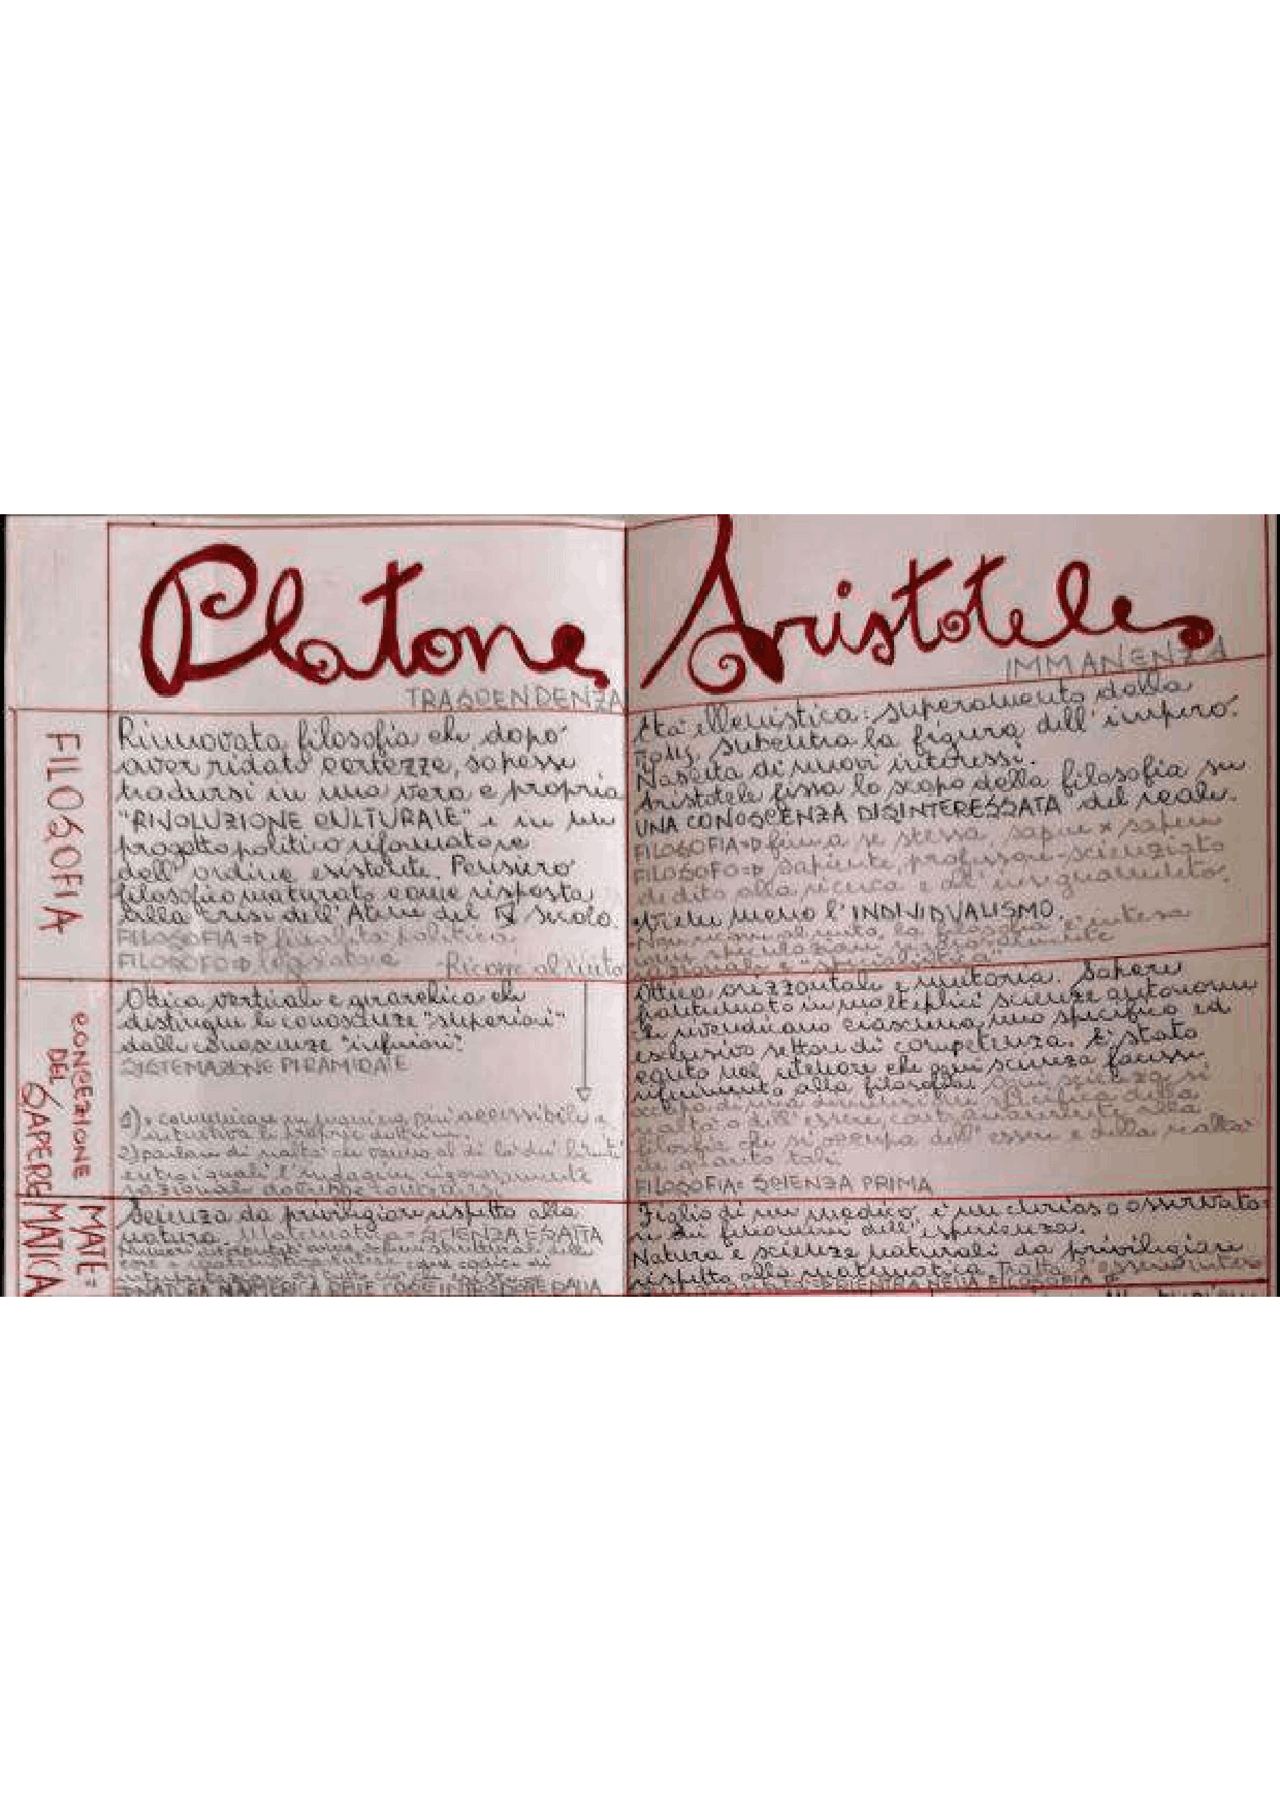 Platone
TRASCENDENZA
Aristotele
IMMANENZA
FILOSOFIA
Rinnovata filosofia che, dopo
aver ridato certezze, sapesse
tradursi in una vera e propria
"RIVOLUZIONE CULTURALE" e in un
progetto politico riformatore
dell'ordine esistente. Pensiero
filosofico maturato come risposta
alla crisi dell'Atene del IV secolo.
FILOSOFIA => finalità politica
FILOSOFO => legislatore
- Ricorre al mito
Età ellenistica: superamento della
Polis, subentra la figura dell'impero.
Nascita di nuovi interessi.
Aristotele fissa lo scopo della filosofia in
UNA CONOSCENZA DISINTERESSATA del reale.
FILOSOFIA => fine a se stessa, sapere x sapere
FILOSOFO => sapiente, professore-scienziato
dedito alla ricerca e all'insegnamento.
Viene meno l'INDIVIDUALISMO.
- Non ricorre al mito, la filosofia è intesa
come speculazione rigorosamente
razionale e "specialistica"
CONCEZIONE
DEL
SAPERE
Ottica verticale e gerarchica che
distingue le conoscenze "superiori"
dalle conoscenze "inferiori".
SISTEMAZIONE PIRAMIDALE
1) comunicare in maniera più accessibile e
intuitiva le proprie dottrine
2) parlare di realtà che vanno al di là dei limiti
entro i quali l'indagine rigorosamente
razionale
Ottica orizzontale e unitaria. Sapere
in molteplici scienze autonome
che rivendicano ciascuna uno specifico ed
esclusivo settore di competenza. È stato
che ogni scienza facesse
riferimento alla filosofia. Ogni scienza si
occupa di una dimensione specifica della
realtà o dell'essere,
filosofia che si occupa dell'essere e della realtà
in quanto tali
FILOSOFIA = SCIENZA PRIMA
MATE=
MATICA
Scienza da privilegiare rispetto alla
natura. Matematica = SCIENZA ESATTA
NATURA NUMERICA DELLE COSE
Figlio di un medico, è un curioso osservato-
re dei fenomeni dell'esperienza.
Natura e scienze naturali da privilegiare
rispetto alla matematica.
RIENTRA NELLA FILOSOFIA